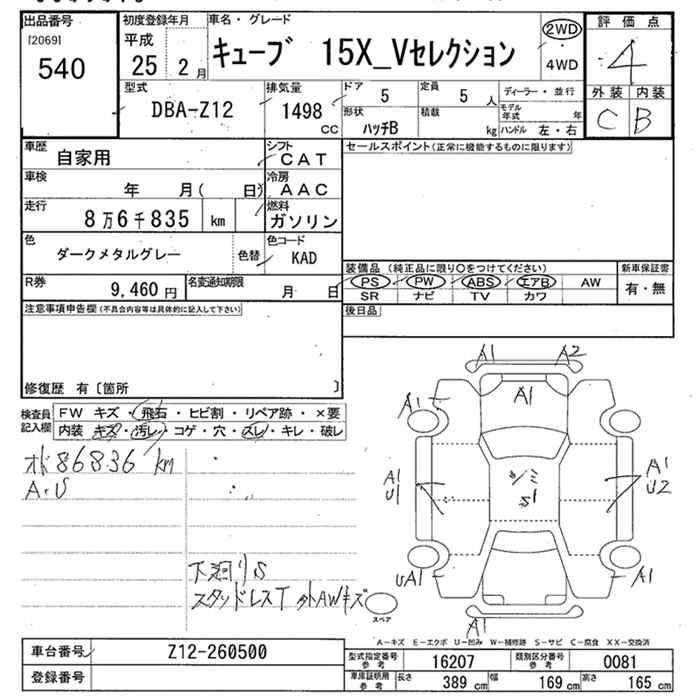 出品番号
[2069]
540
初度登録年月
平成
25 2 月
車名・グレード
キューブ 15X_Vセレクション
2WD
・
4WD
評価点
4
外装 内装
C B
型式
DBA-Z12
排気量
1498
cc
ドア
5
定員
5 人
形状
ハッチB
積載
kg
ディーラー・並行
モデル年式 年
ハンドル 左・右
車歴
自家用
シフト
CAT
車検
年 月( 日)
冷房
AAC
走行
8万6千835 km
燃料
ガソリン
色
ダークメタルグレー
色替
色コード
KAD
R券
9,460 円
名変通知期限
月 日
セールスポイント(正常に機能するものに限ります)
装備品 (純正品に限り○をつけてください)
PS PW ABS エアB AW
SR ナビ TV カワ
新車保証書
有・無
後日品
注意事項申告欄(不具合内容等は具体的に記入して下さい)
修復歴 有〔箇所 〕
検査員記入欄
FW キズ・飛石・ヒビ割・リペア跡・×要
内装 キズ・汚レ・コゲ・穴・スレ・キレ・破レ
オドメ 86836 km
A・U
下廻りS
スタッドレスT 外AWキズ
A1 A2
A1
A1
A1
U1
A1
U2
S1
UA1
A1
A1
スペア
A-キズ E-エクボ U-凹み W-補修跡 S-サビ C-腐食 XX-交換済
車台番号
Z12-260500
登録番号
型式指定番号
参考
16207
類別区分番号
参考
0081
車庫証明用
参考
長さ 389 cm
幅 169 cm
高さ 165 cm